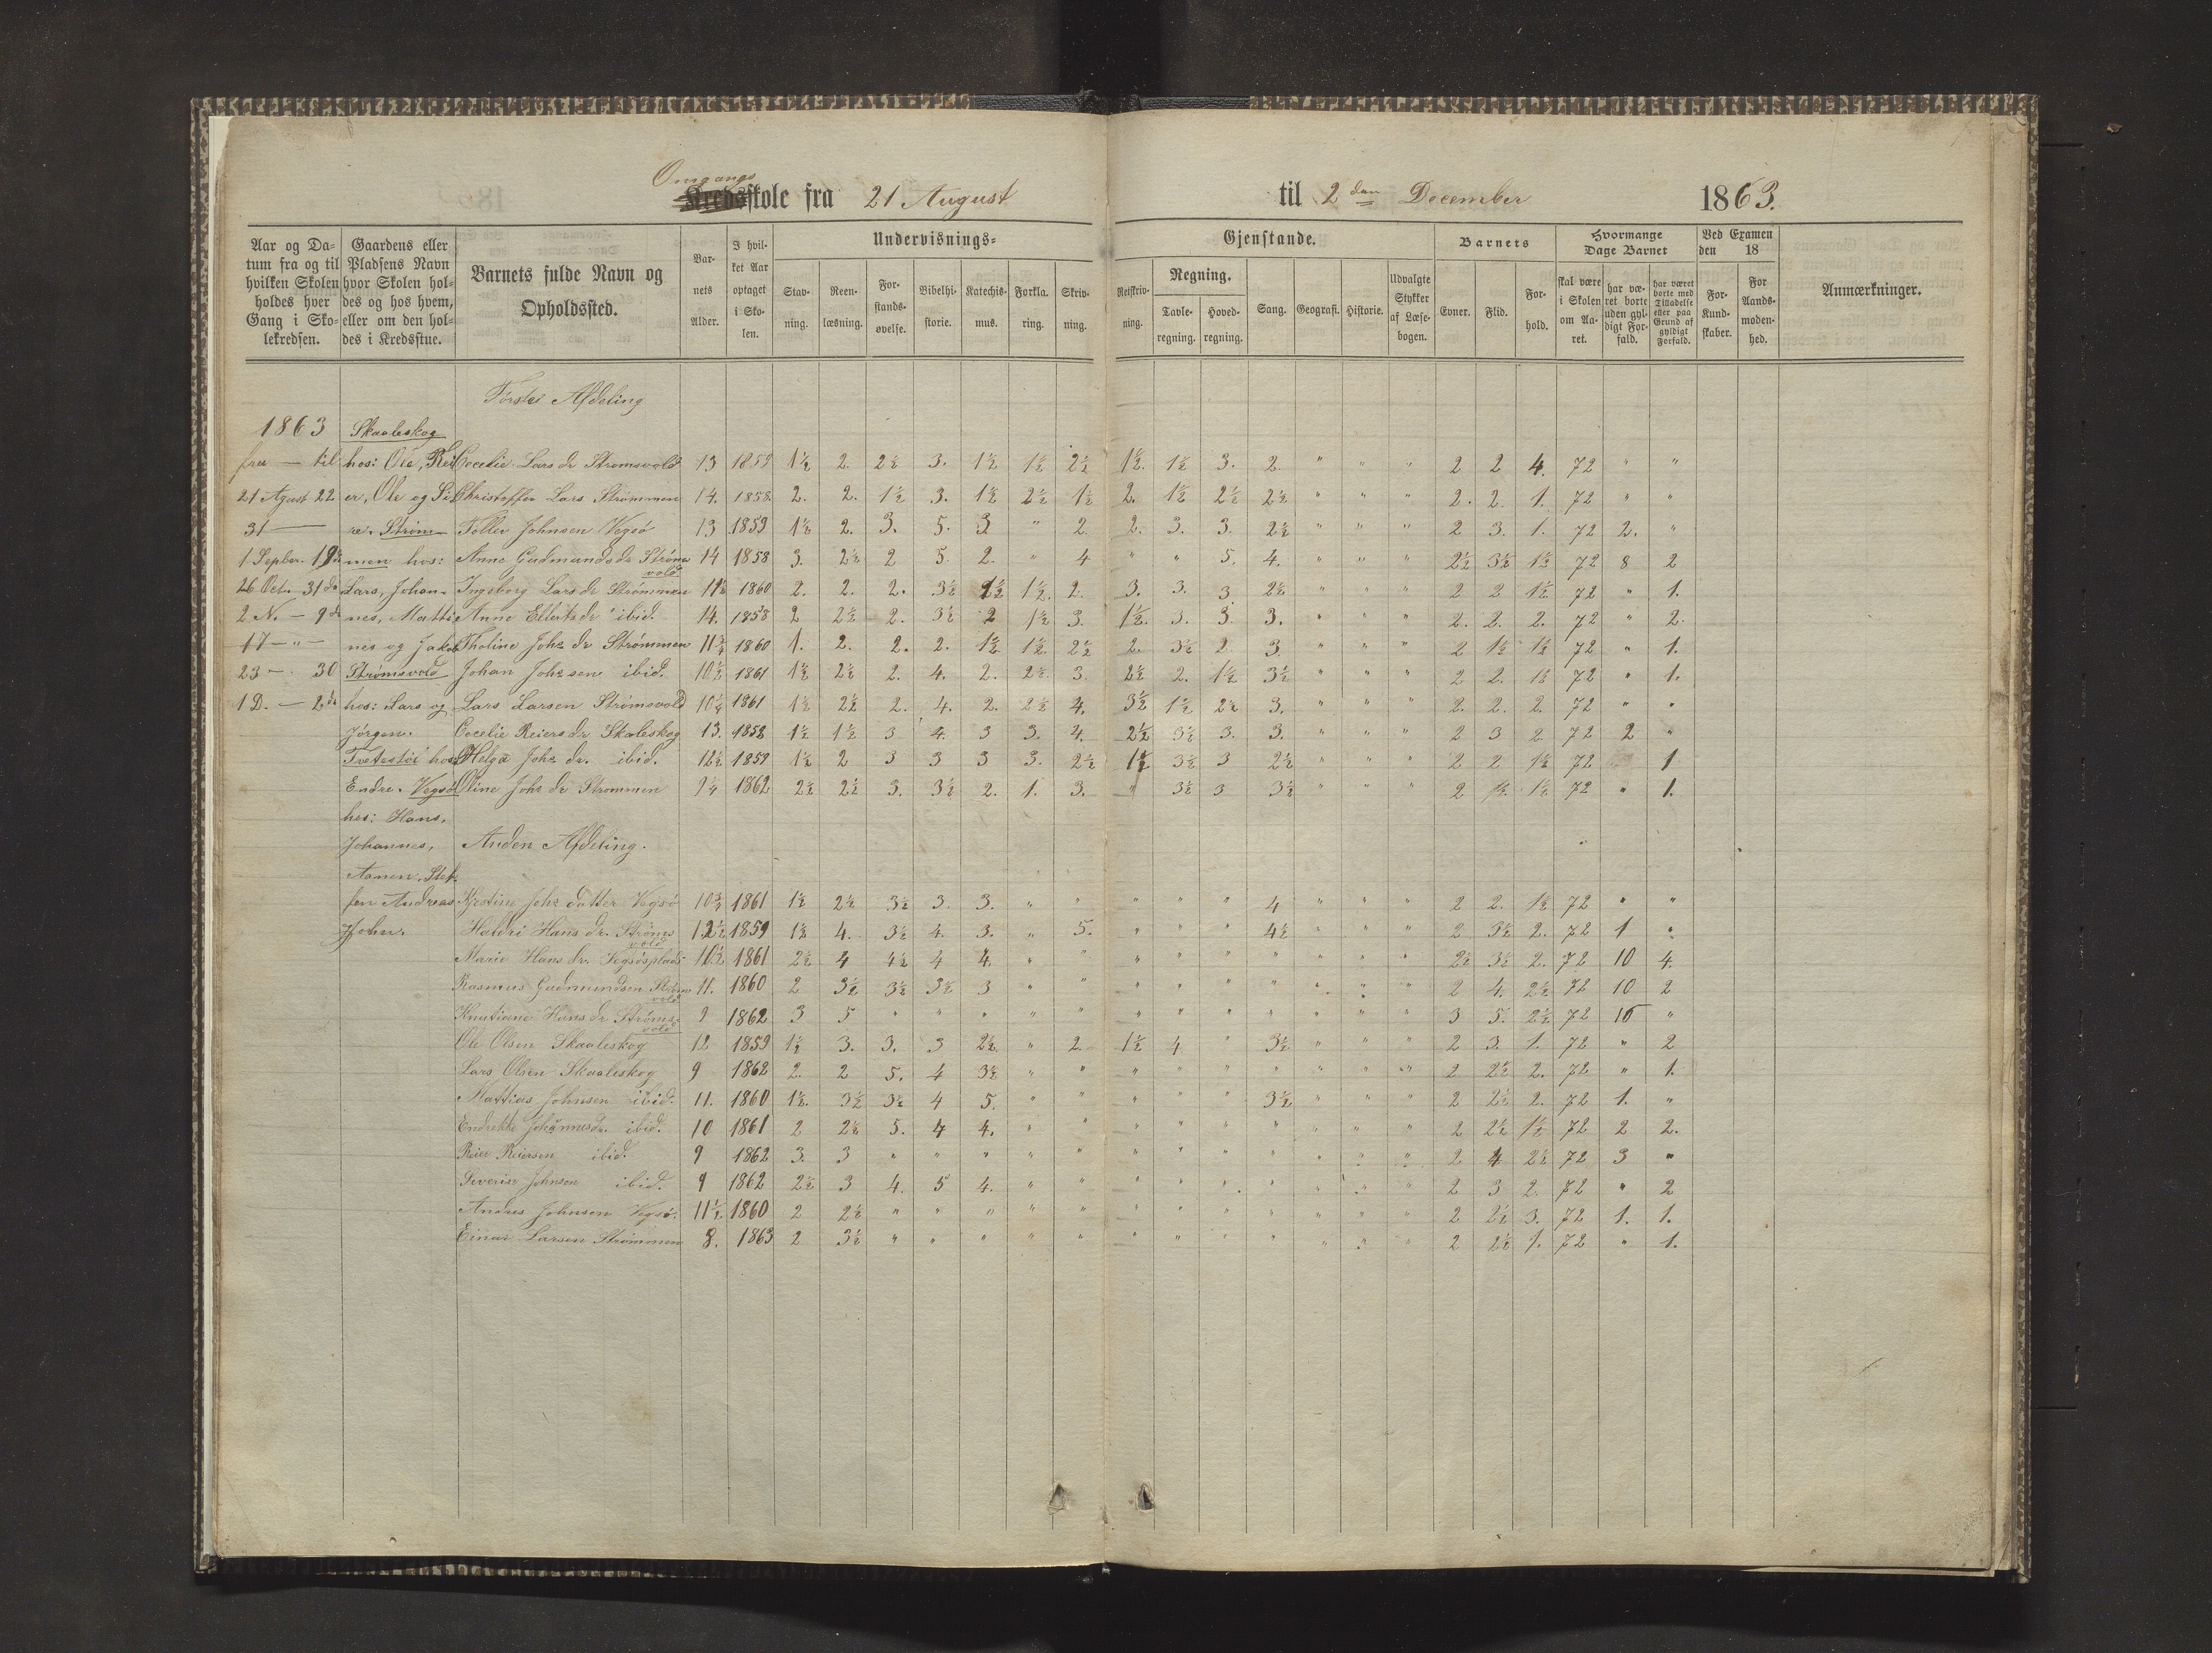 Omgangs
Kredsskole fra 21 August til 2den December 1863.
Aar og Datum fra og til hvilken Skolen holdes hver Gang i Skolekredsen. | Gaardens eller Pladsens Navn hvor Skolen holdes og hos hvem, eller om den holdes i Kredsstue. | Barnets fulde Navn og Opholdssted. | Barnets Alder. | I hvilket Aar optaget i Skolen. | Undervisnings= Gjenstande. | Barnets | Hvormange Dage Barnet | Ved Examen den 18 | Anmærkninger.
Stavning. | Reenlæsning. | Forstandsøvelse. | Bibelhistorie. | Katechismus. | Forklaring. | Skrivning. | Retskrivning. | Regning. Tavleregning. | Hovedregning. | Sang. | Geografi. | Historie. | Udvalgte Stykker af Læsebogen. | Evner. | Flid. | Forhold. | skal være i Skolen om Aaret. | har været borte uden gyldigt Forfald. | har været borte med Tilladelse eller paa Grund af gyldigt Forfald. | For Kundskaber. | For Aandsmodenhed.
Første Afdeling
1863 Skaaleskog
fra — til hos: Ole, Rei Cecelie Lars dr Strømsvold 13 1859 1½ 2. 2½ 3. 1½ 1½ 2½ 1½. 1½ 3. 2. " " " 2 2 4. 72 " "
21 Agust 22 er, Ole og Si Christoffer Lars Strømmen 14. 1858 2. 2. 1½ 3. 1½ 2½ 1½ 2. 1½ 2½ 2½ " " " 2. 2. 1. 72 " "
31 — re. Strøm Johnsen Vegsø 13 1859 1½ 2. 3. 5. 3 " 2. 2. 3. 3. 2½ " " " 2 3. 1. 72 2. "
1 Septber. men hos: Anne Gudmundsdr Strømsvold 14 1858 3. 2½ 2 5. 2. " 4 " " 5. 4. " " " 2½ 3½ 1½ 72 8 2
26 Octr. 31 Lars, Johan- Ingeborg Lars dr Strømmen 11½ 1860 2. 2. 2. 3½ 1½ 1½. 2. 3. 3. 3 2½ " " " 2 2 1½ 72 " 1.
2 N. — 9 nes, Matti Anne Ellertsdr ibid. 14. 1858 2 2½ 2. 3½ 2 1½ 3. 1½. 3. 3. 3. " " " 2. 2. 2. 72 " 2.
17 — " — nes og Jakob Tholine Johs dr Strømmen 11¾ 1860 1. 2. 2. 2. 1½ 1½. 2½ 2. 3½ 2 3. " " " 2 1½ 1½ 72 " 1.
23 — 30 Strømsvold Johan Johs sen ibid. 10½ 1861 1½ 2½ 2. 4. 2. 2½ 3. 2½ 2. 1½ 3½ " " " 2 2. 1½ 72 " 1.
1 D. — 2 hos: Lars og Lars Larsen Strømsvold 10¼ 1861 1½ 2½ 2. 4. 2. 2½ 4. 3½ 1½ 2½ 3. " " " 2. 2. 2. 72 " "
Jørgen. Cecelie Reiersdr Skaleskog 13. 1858 1½ 1½ 3 4. 3 3. 4. 2½ 3½ 3. 3. " " " 2 3 2 72 2 "
hos Helga Johs dr. ibid. 12½ 1859 1½ 2 3 3 3 3. 2½ 1½ 3½ 3 2½ " " " 2 2 1½ 72 1
Endre. Vegsø Oline Johs dr Strømmen 9¼ 1862 2½ 2½ 3. 3½ 2. 1. 3. " 3½ 3 3½ " " " 2 1½. 1½ 72 " 1.
hos: Hans,
Johannes, Anden Afdeling.
Stef-
fen Andreas Johs datter Vegsø 10¾ 1861 1½ 2½ 3½ 3. 3. " " " " " 4 " " " 2 2. 1½ 72 " "
John. Hans dr. Strømsvold 12½ 1859 1½ 4. 3½ 4. 3. " 5. " " " 4½ " " " 2 3½ 2. 72 1 "
Marie Hans dr. Vegsøsplads 10½ 1861 2½ 4 4½ 4 4. " " " " " " " " " 2½ 3½ 2. 72 10 4.
Rasmus Gudmundsen Strømsvold 11. 1860 2 3½ 3½ 3½ 3 " " " " " " " " " 2 4. 2½ 72 10 2
Knutiane Hans dr Strømsvold 9 1862 3 5 " " " " " " " " " " " " 3 5. 2½ 72 16 "
Ole Olsen Skaaleskog 12 1859 1½ 3. 3. 3 2½ " 2. 1½ 4 " 3½ " " " 2 3. 1. 72 " 2
Lars Olsen Skaaleskog 9 1862 2. 2 5. 4 3½ " " " " " " " " " 2 2½ 2. 72 " 1.
Mattias Johnsen ibid. 11. 1860 1½. 3½ 3½ 4 5. " " " " " 3½ " " " 2 2½ 2. 72 1. "
Johannesdr. ibid. 10 1861 2 2½ 5. 4 4. " " " " " " " " " 2 2½ 1½ 72 2 2.
Reier Reiersen ibid. 9 1862 3. 3 " " " " " " " " " " " " 2 4 2½ 72 3 "
Severin Johnsen ibid. 9 1862 2½ 3 4. 5 4. " " " " " " " " " 2 3 2. 72 " 2
Andres Johnsen Vegsø. 11½ 1860 2 2½ " " " " " " " " " " " " 2 2½ 3. 72 1. 1.
Einar Larsen Strømmen 8. 1863 2 3½ " " " " " " " " " " " " 2 2½ 1. 72 " 1.